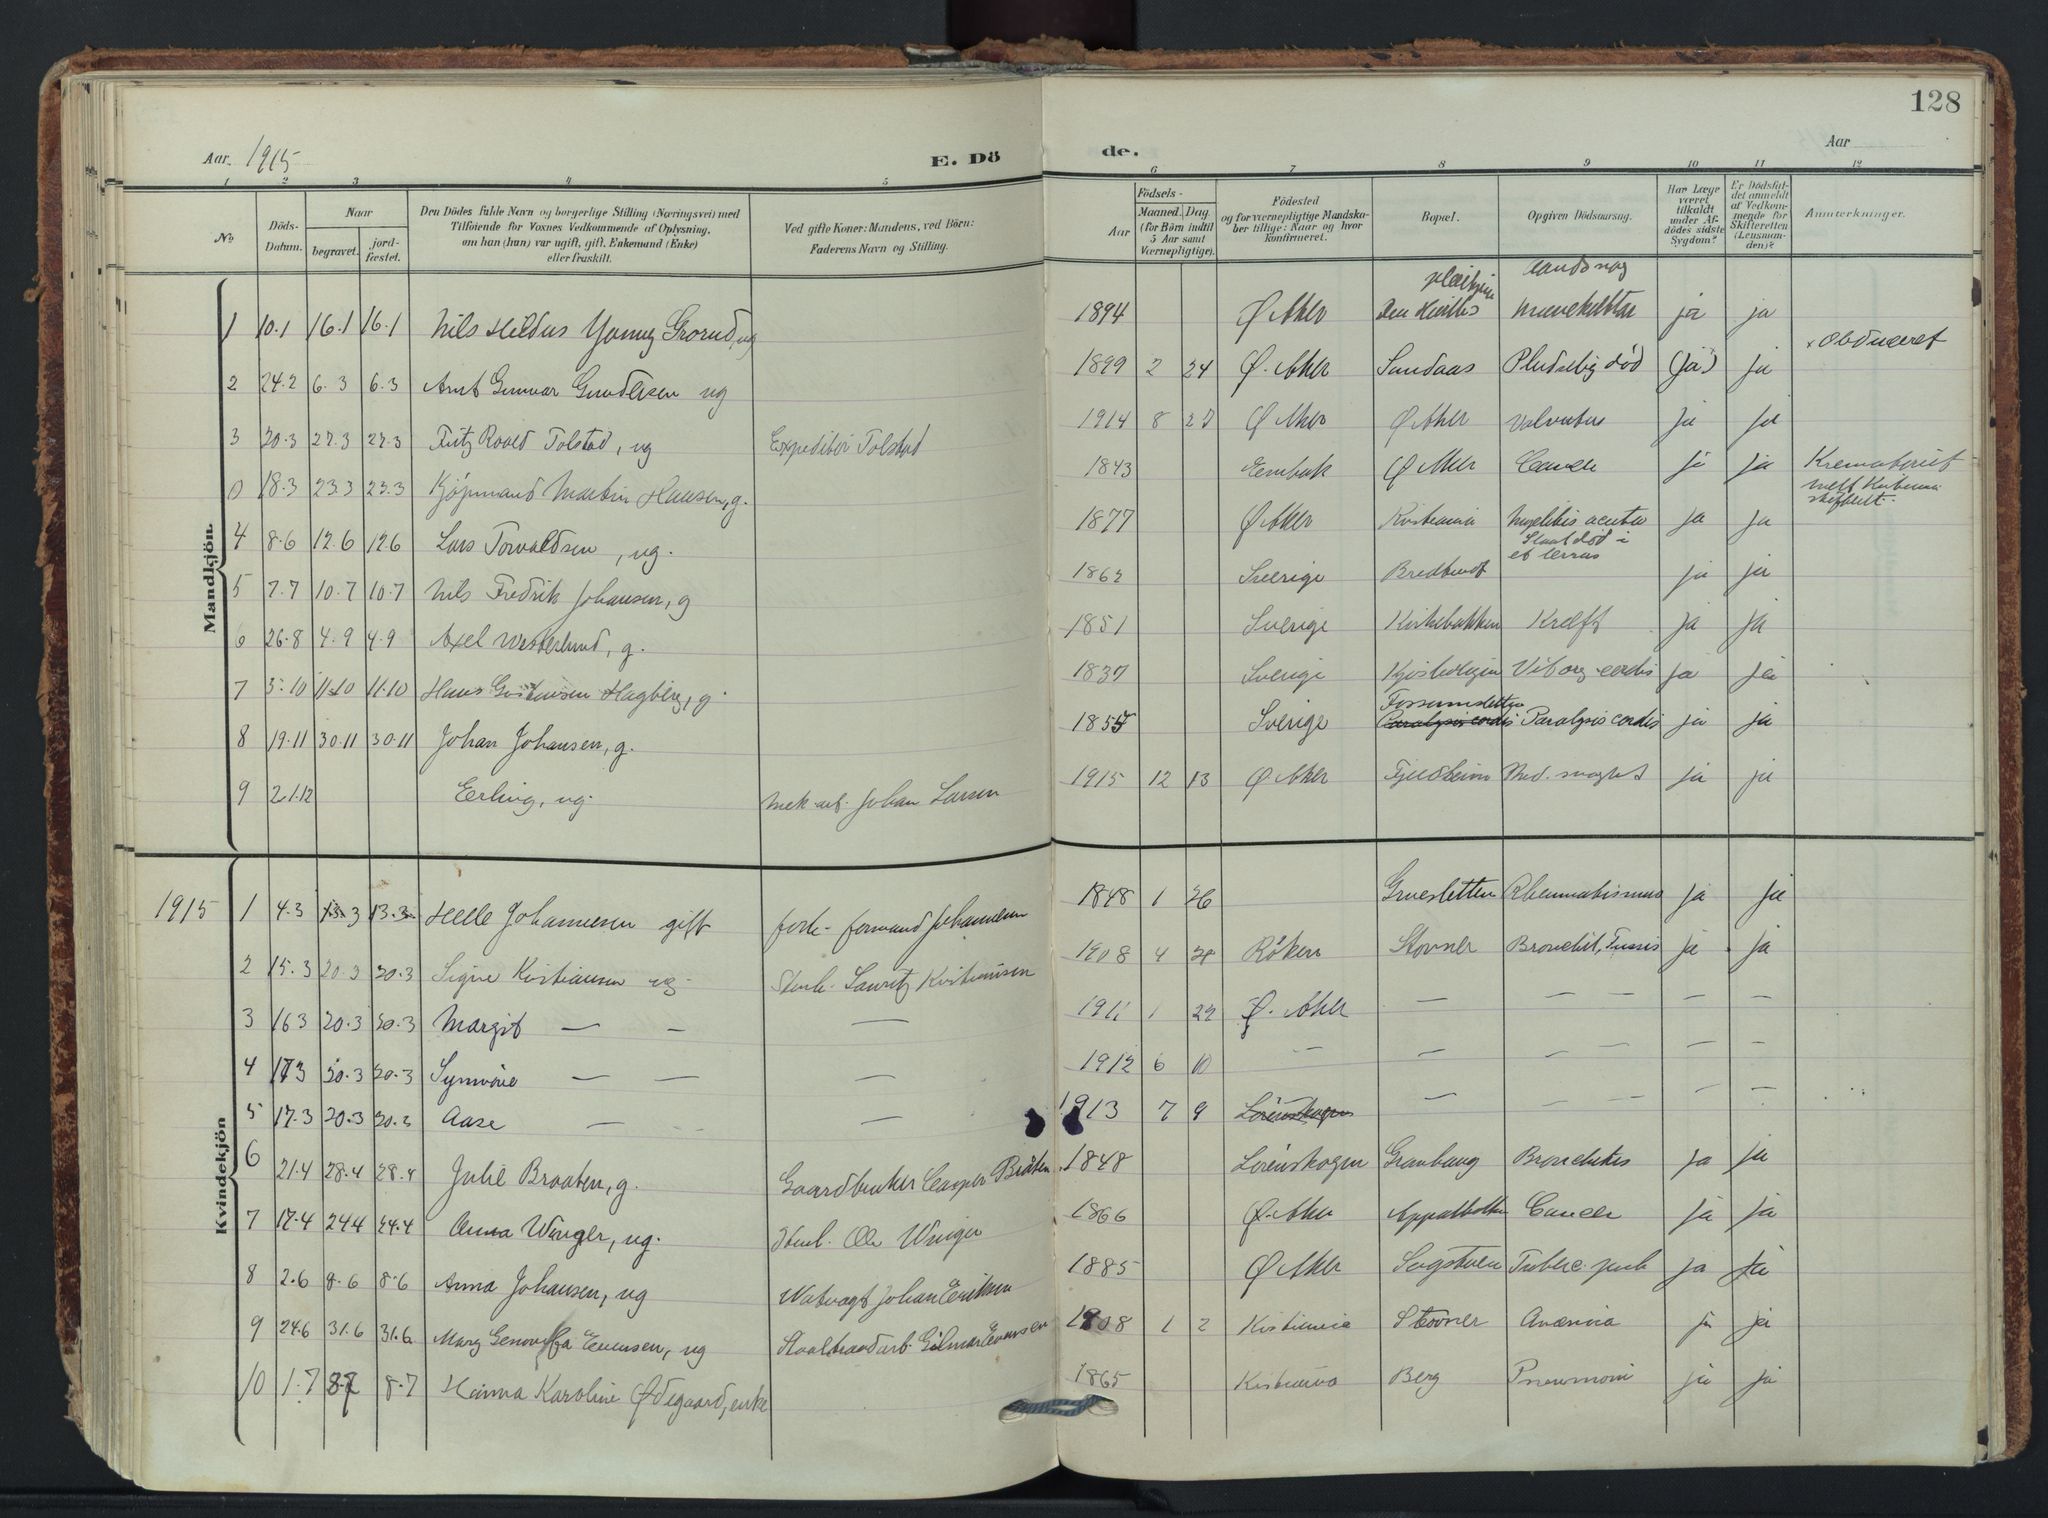 128
Aar. 1915
E. Döde.
Aar
1 2 3 4 5 6 7 8 9 10 11 12
No.
Döds-Datum.
Naar
begravet.
jordfæstet.
Den Dödes fulde Navn og borgerlige Stilling (Næringsvei) med
Tilföiende for Voxnes Vedkommende af Oplysning,
om han (hun) var ugift, gift, Enkemand (Enke)
eller fraskilt.
Ved gifte Koner: Mandens, ved Börn:
Faderens Navn og Stilling.
Aar
Födsels-
Maaned. Dag
(for Börn indtil
5 Aar samt
Værnepligtige).
Födested
og for værnepligtige Mandska-
ber tillige: Naar og hvor
konfirmeret.
Bopæl.
Opgiven Dödsaarsag.
Har Læge
været
tilkaldt
under Af-
dödes sidste
Sygdom?
Er Dödsfal-
det anmeldt
af Vedkom-
mende for
Skifteretten
(Lensman-
den)?
Anmærkninger.
Mandkjön.
1 10.1 16.1 16.1 Nils Hildus Grorud, ug 1894 Ø. Aker ja ja
2 24.2 6.3 6.3 Arnt Gunnar Gundersen ug 1899 2 24 Ø. Aker Sandaas Pludselig død (ja) ja × Obduceret
3 20.3 27.3 27.3 Fritz Roald Tolstad, ug Expeditør Tolstad 1914 8 Ø Aker Ø Aker ja ja
0 18.3 23.3 23.3 Kjøpmand Martin Hansen, g. 1843 Eembak Ø Aker Cancer ja ja
4 8.6 12.6 12.6 Lars Torvaldsen, ug. 1877 Ø Aker Kristiania Myelitis acuta ja ja
5 7.7 10.7 10.7 Nils Fredrik Johansen, g 1862 Sverige ja ja
6 26.8 4.9 4.9 Axel Westerlund, g. 1851 Sverige Kirkebakken Kræft ja ja
7 5.10 11.10 11.10 Hans Gustavsen Hagberg, g. 1837 Sverige cordis ja ja
8 19.11 30.11 30.11 Johan Johansen, g. 1855 Sverige Fossumsletten Paralysis cordis Paralysis cordis ja ja
9 21.12 Erling, ug. Mek. arb. Johan Larsen 1915 12 13 Ø Aker Fjeldheim Med. svaghet ja ja
Kvindekjön
1915 1 4.3 13.3 13.3 Helle Johannesen gift formand Johannesen 1848 1 26 Gruesletten Rheumatismus ja ja
2 15.3 20.3 20.3 Signe Kristiansen ug Stenh. Lauritz Kristiansen 1908 4 Røken Stovner Bronchit, Tussis ja ja
3 16.3 20.3 20.3 Margit — — — 1911 1 22 Ø. Aker — — — — —
4 17.3 20.3 20.3 Synnøve — — — 1912 6 10 — — — — — —
5 17.3 20.3 20.3 Aase — — 1913 7 9 Lørenskogen — — — —
6 21.4 28.4 28.4 Julie Braaten, g. Gaardbruker Casper Bråten 1848 Lørenskogen Granhaug Bronchitis ja ja
7 17.4 24.4 24.4 Anna Winger, ug. Stenh. Ole Winger 1866 Ø. Aker Cancer ja ja
8 2.6 8.6 8.6 Anna Johansen, ug Johan Eriksen 1885 Ø Aker Sagstuen Tuberc. pulm ja ja
9 24.6 31.6 31.6 Mary Genovefa Evensen, ug Staaltraadarb. Gilmar Evensen 1908 1 2 Kristiania Stovner Anæmia ja ja
10 1.7 8.7 8.7 Hanna Karoline Ødegaard, enke 1865 Kristiania Berg Pneumoni ja ja